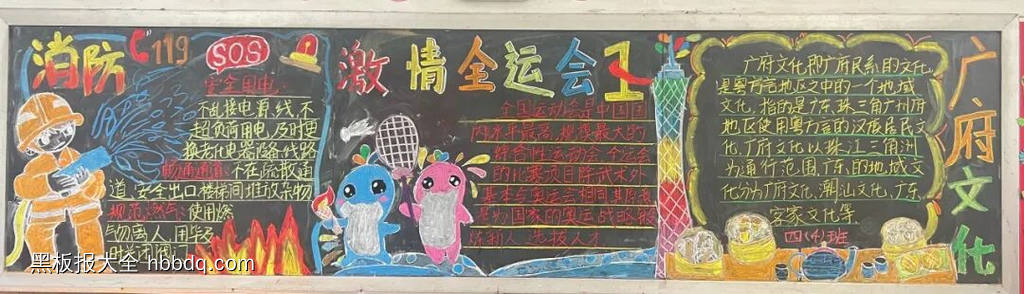 消防 119
SOS
安全用电:
不乱接电源线,不
超负荷用电,及时更
换老化电器设备、线路
畅通通道:不在疏散通
道、安全出口楼梯间堆放杂物
规范燃气:使用燃
气勿离人,用毕及
时关闭阀门
激情全运会
全国运动会是中国国
内水平最高、规模最大的
综合性运动会,全运会
的比赛项目除武术外
基本与奥运会相同,其
为国家的奥运战略
选拔人才
广府文化
广府文化即广府民系的文化,
是粤方言地区之中的一个地域
文化,指的是广东珠三角广州府
地区使用粤方言的汉族居民文
化,广府文化以珠江三角洲
为通行范围,广东的地域文
化分为广府文化、潮汕文化、广东
客家文化等
四(4)班
黑板报大全 hbbdq.com